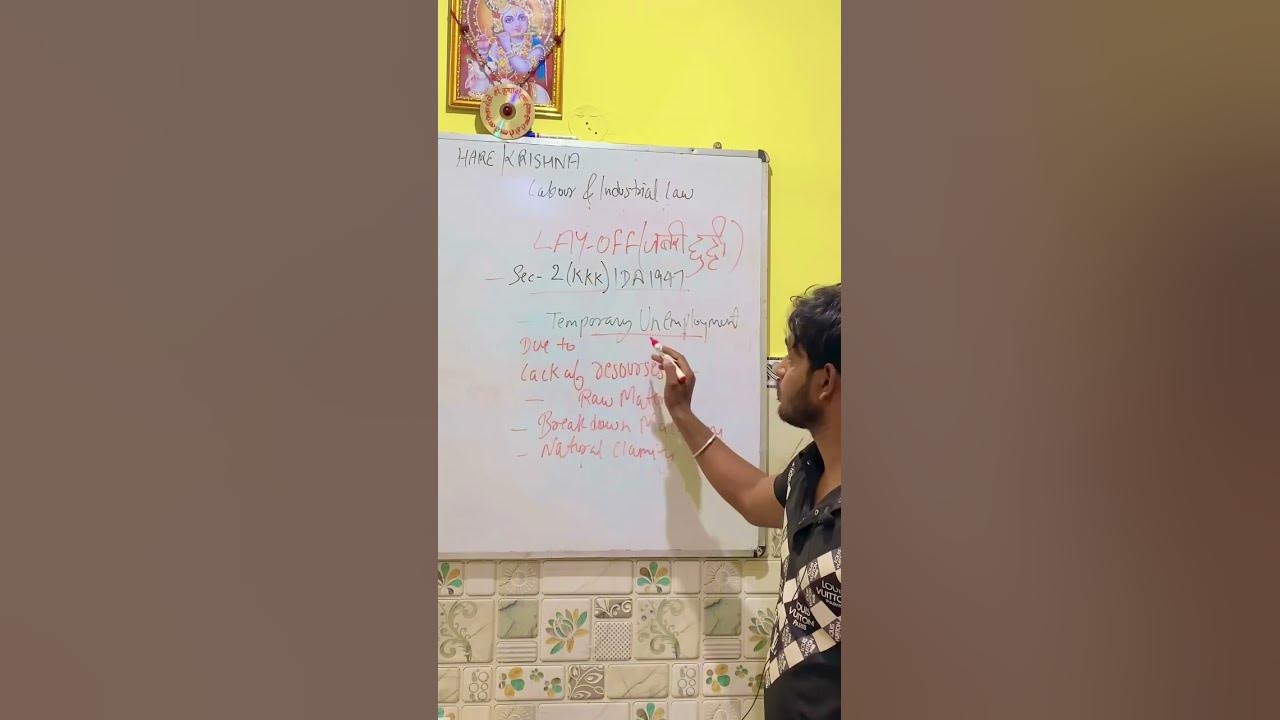 HARE KRISHNA
Labour & Industrial Law
LAY-OFF (जबरी छुट्टी)
— Sec- 2 (KKK) IDA 1947
— Temporary Unemployment
Due to
Lack of resourses —
— Raw Mat
— Breakdown Ma
— Natural Clamity
LOUIS
VUITTON
PARIS
LOUIS
VUITTON
PARIS